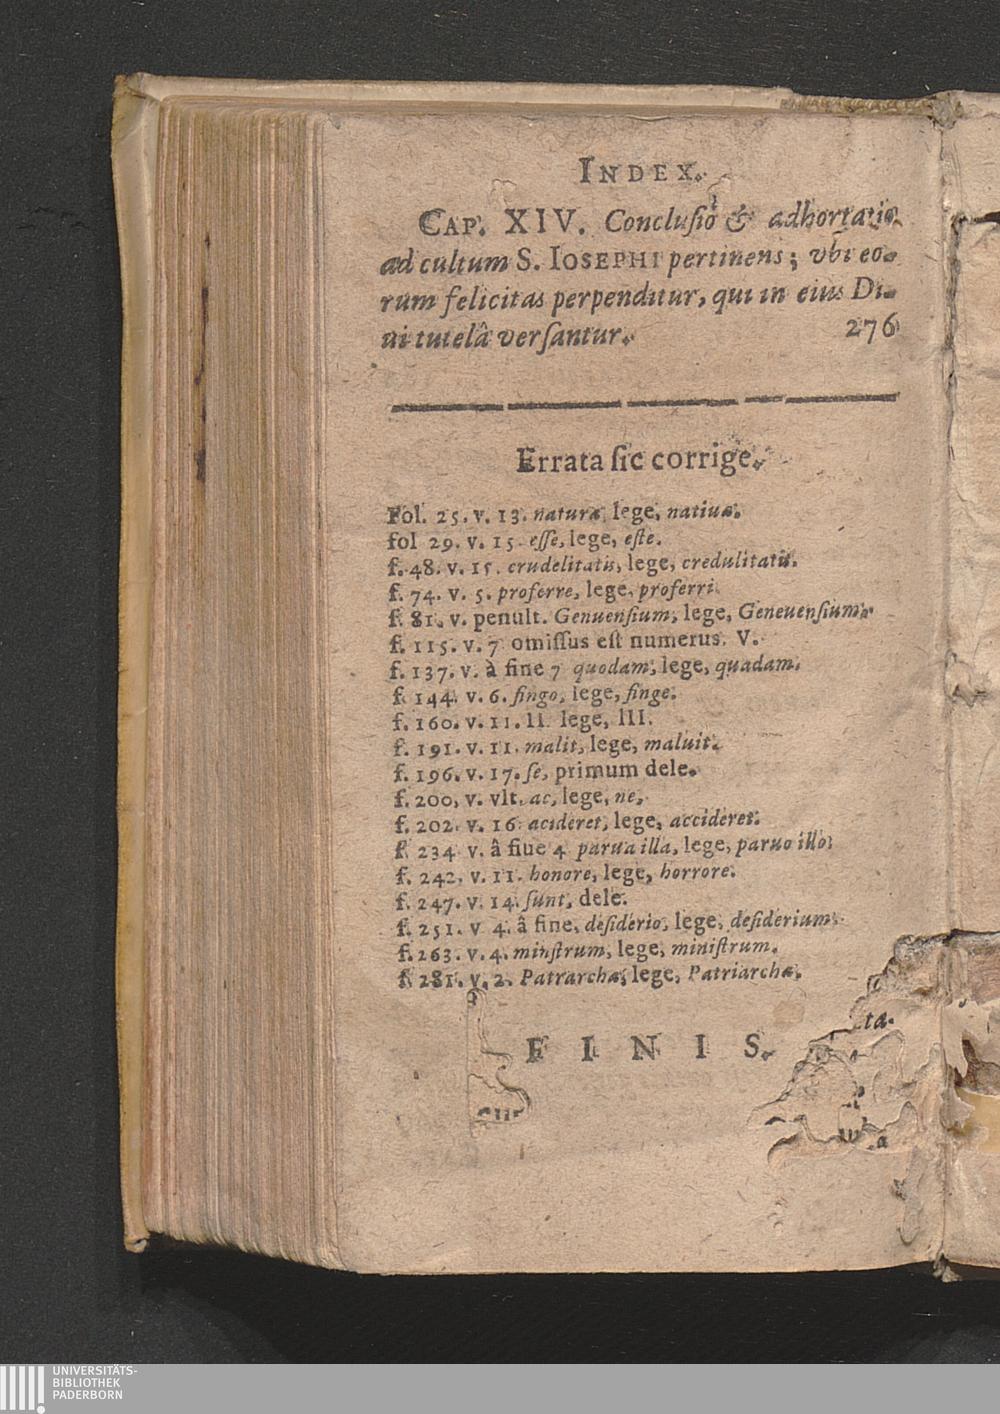 INDEX.
CAP. XIV. Conclusio & adhortatio
ad cultum S. IOSEPHI pertinens; vbi eo-
rum felicitas perpenditur, qui in eius Di-
ui tutelâ versantur. 276
Errata sic corrige.
Fol. 25. v. 13. naturæ, lege, natiuæ.
fol 29. v. 15. esse, lege, este.
f. 48. v. 15. crudelitatis, lege, credulitatis.
f. 74. v. 5. proferre, lege, proferri.
f. 81. v. penult. Genuensium, lege, Geneuensium.
f. 115. v. 7 omissus est numerus. V.
f. 137. v. à fine 7 quodam, lege, quadam.
f. 144. v. 6. fingo, lege, finge.
f. 160. v. 11. II. lege, III.
f. 191. v. 11. malit, lege, maluit.
f. 196. v. 17. se, primum dele.
f. 200. v. vlt. ac, lege, ne.
f. 202. v. 16. acideret, lege, accideret.
f. 234 v. â fiue 4 parua illa, lege, paruo illo.
f. 242. v. 11. honore, lege, horrore.
f. 247. v. 14. sunt, dele.
f. 251. v 4. â fine, desiderio, lege, desiderium.
f. 263. v. 4. minstrum, lege, ministrum.
f. 281. v. 2. Patrarcha, lege, Patriarcha.
ta.
FINIS.
UNIVERSITÄTS-
BIBLIOTHEK
PADERBORN